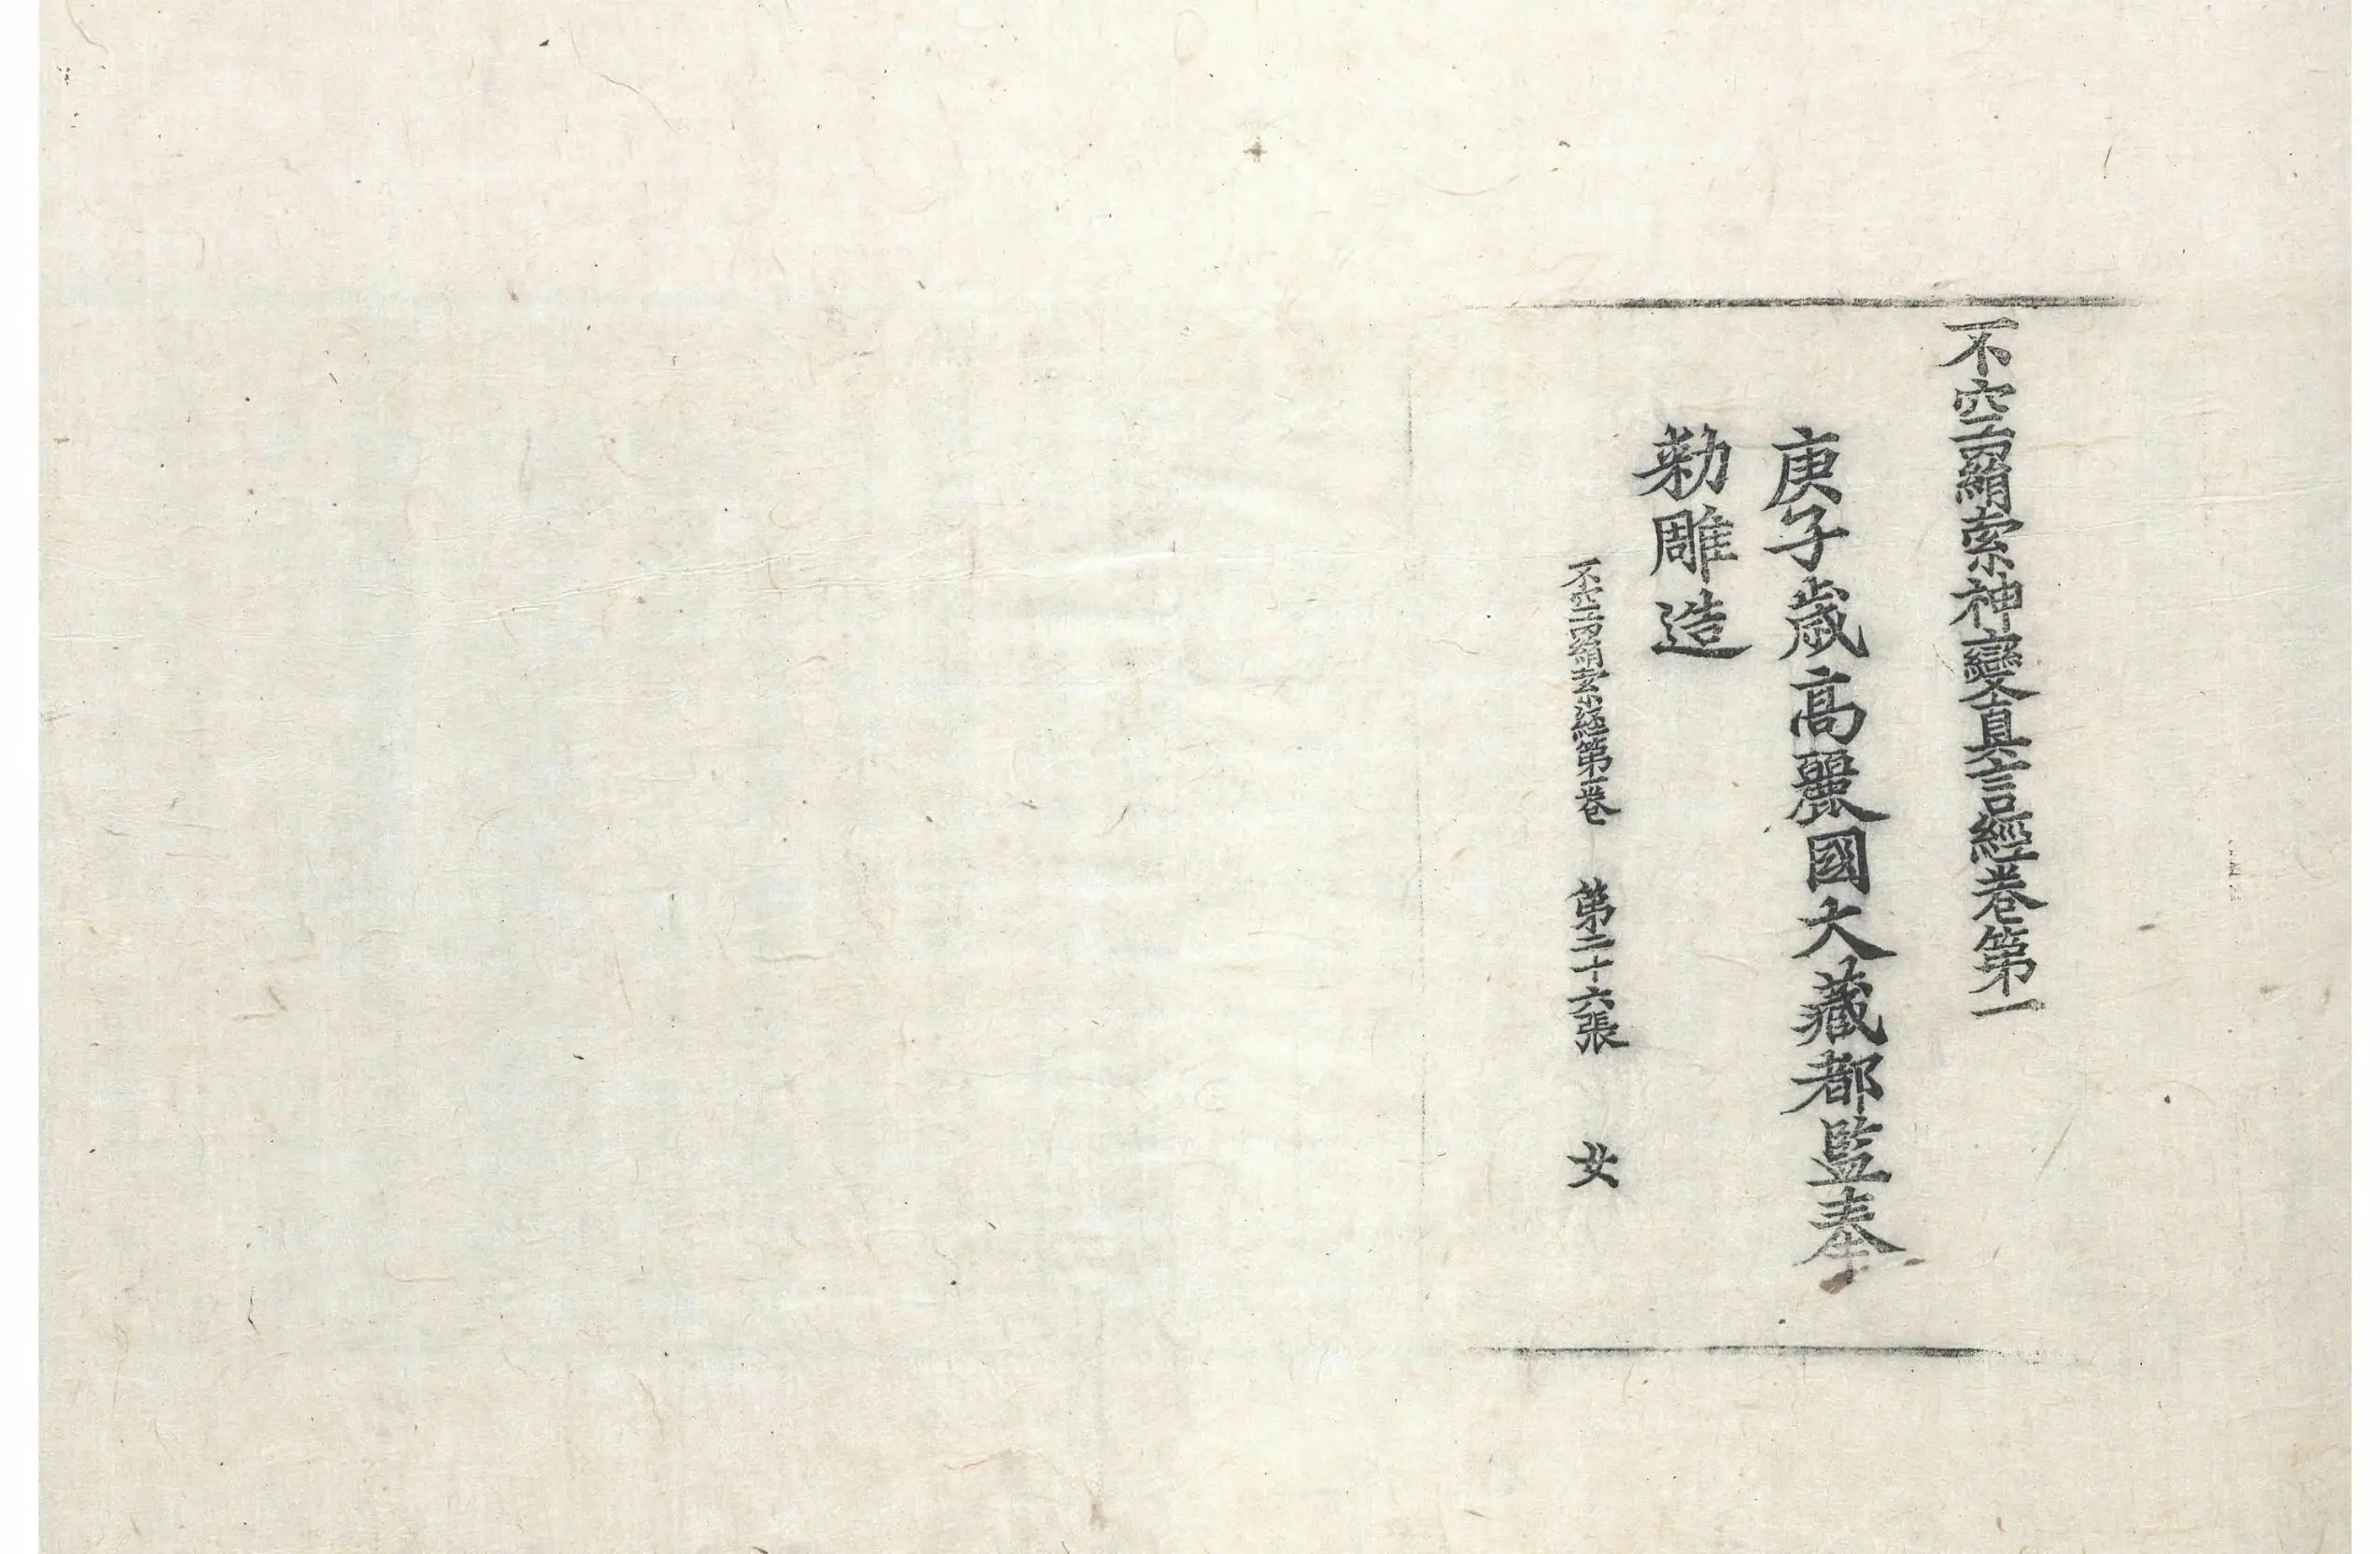 不空羂索神變真言經卷第一
庚子歲高麗國大藏都監奉
勅雕造
不空羂索經第一卷 第二十六張 女